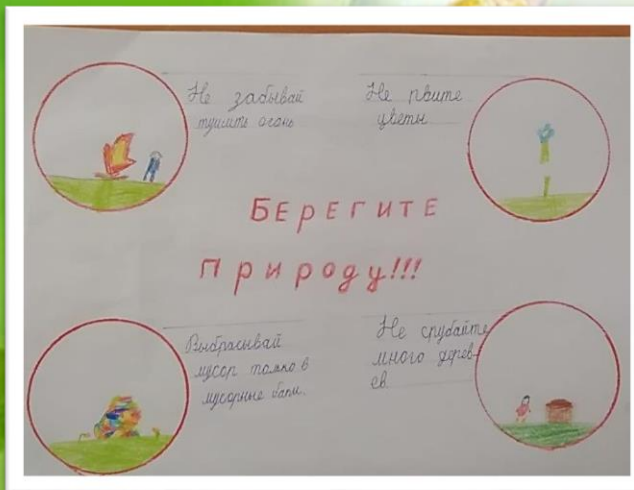 Не забывай
тушить огонь
Не рвите
цветы
БЕРЕГИТЕ
Природу!!!
Выбрасывай
мусор толко в
мусорные баки.
Не срубайте
много дерев-
ев